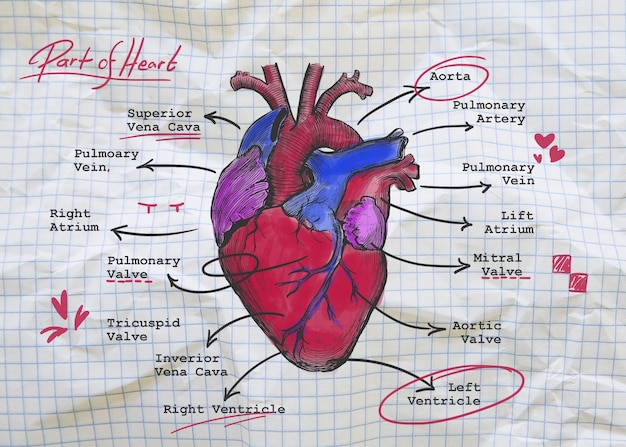 Part of Heart
Superior
Vena Cava
Pulmoary
Vein.
Right
Atrium
Pulmonary
Valve
Tricuspid
Valve
Inverior
Vena Cava
Right Ventricle
Aorta
Pulmonary
Artery
Pulmonary
Vein
Lift
Atrium
Mitral
Valve
Aortic
Valve
Left
Ventricle